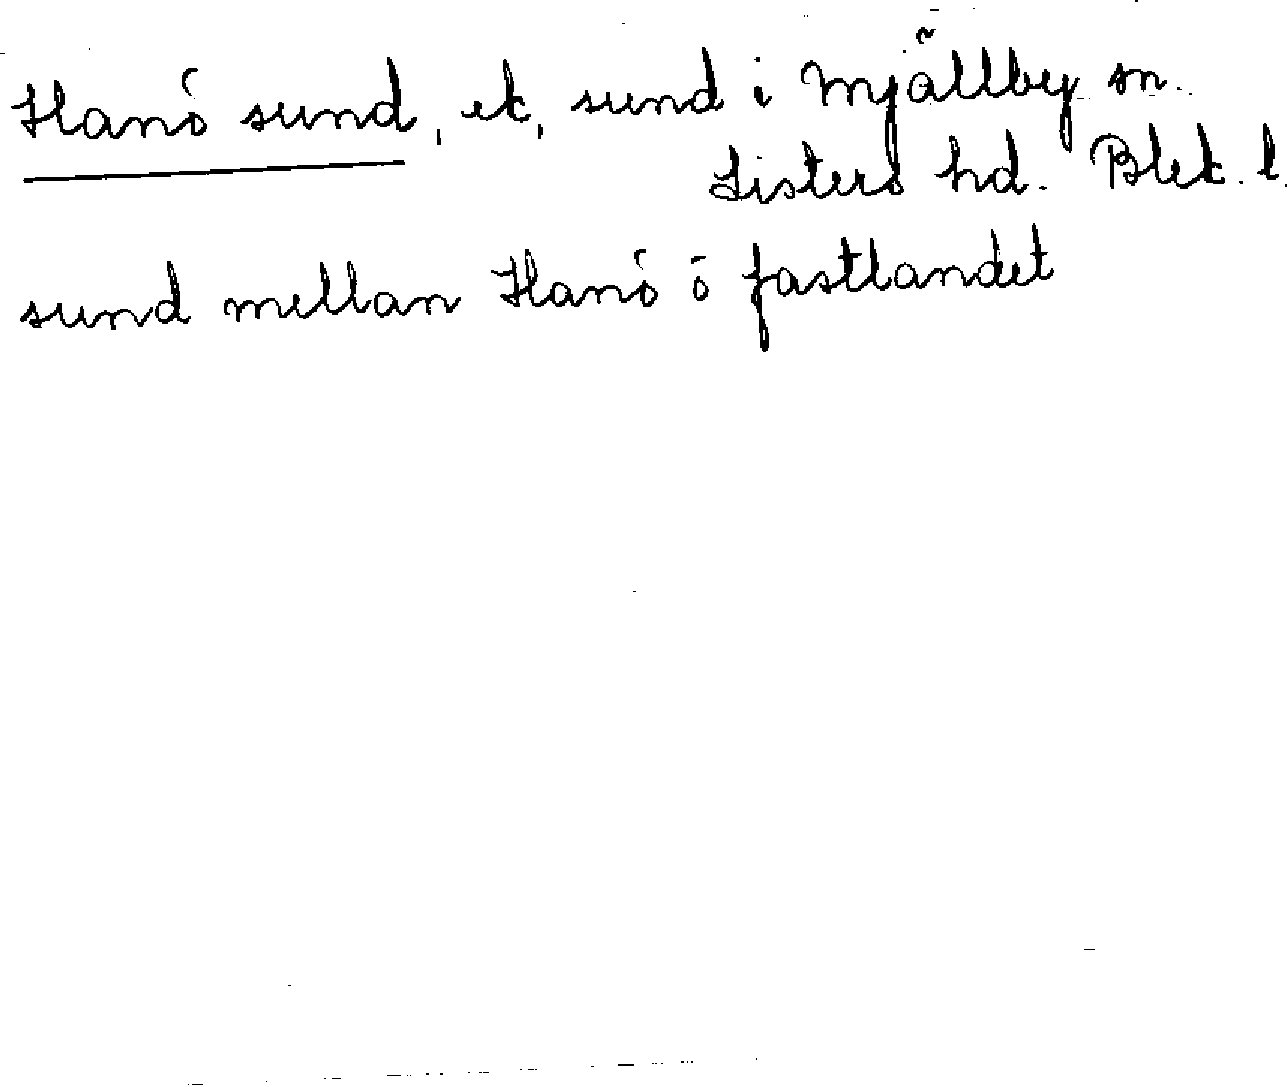 Hanö sund, ek, sund i Mjällby sn.
Listers hd. Blek. l.
sund mellan Hanö o fastlandet